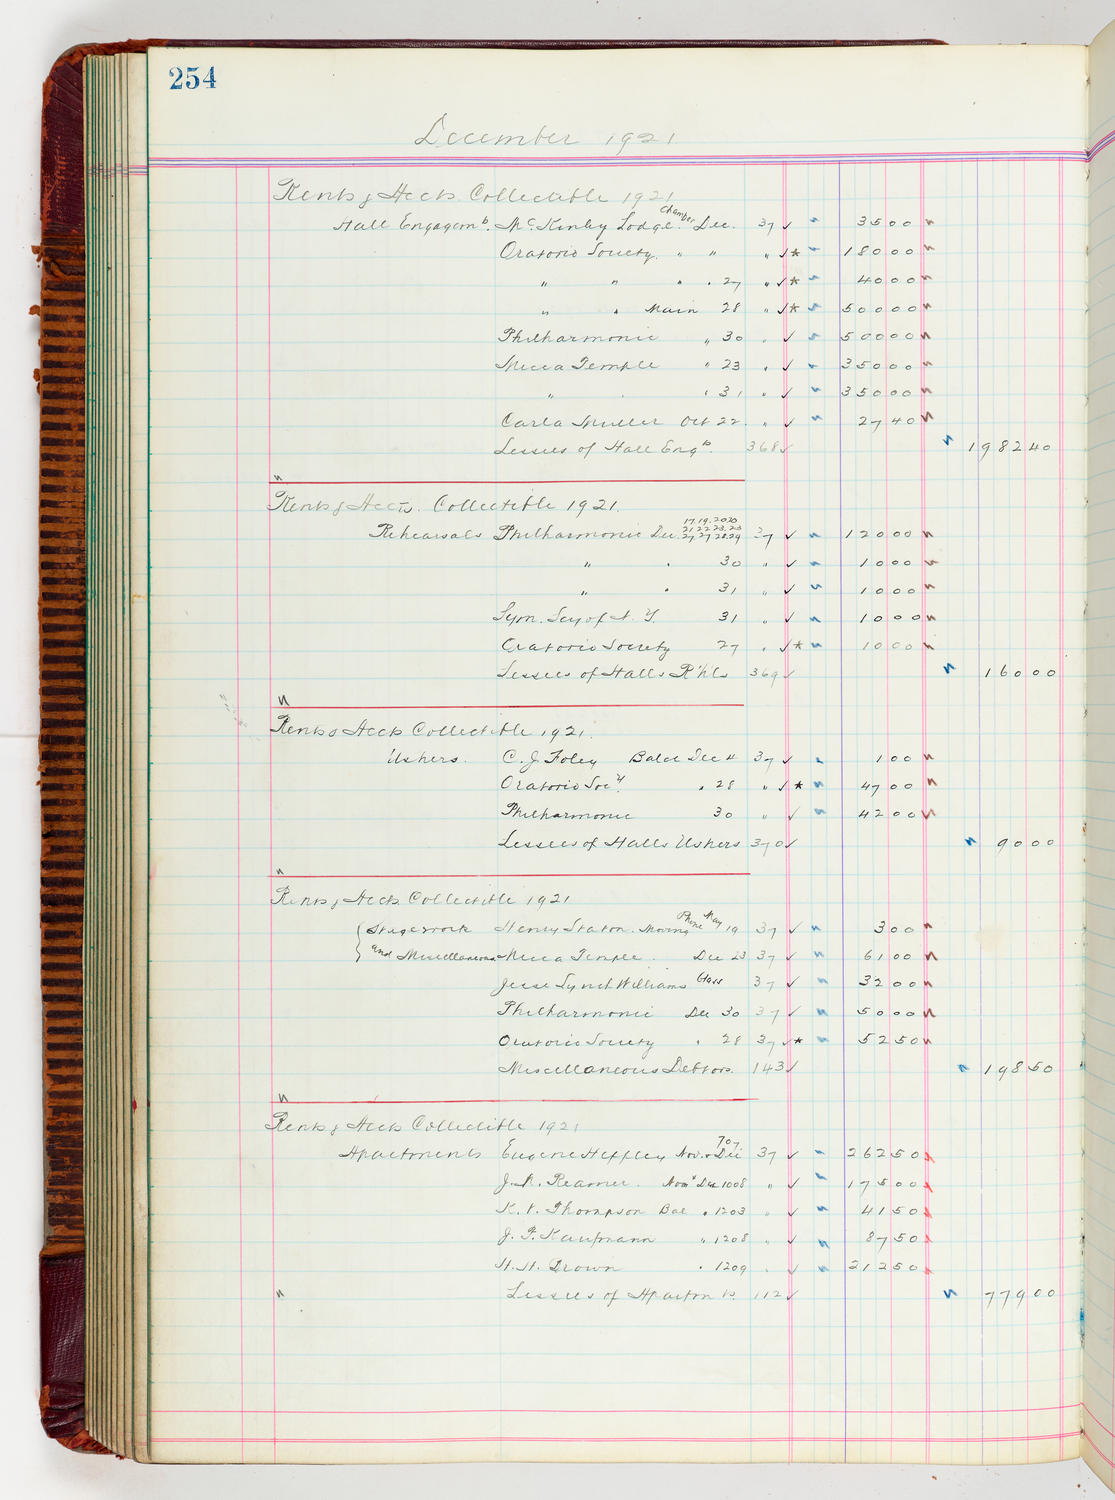 254
December 1921
Rents & Accts Collectible 1921
Hall Engagemts. McKinley Lodge Chamber Dec. 37 ✓ 35 00
Oratorio Society " " " ✓* 180 00
" " " " 27 " ✓* 40 00
" " Main 28 " ✓* 500 00
Philharmonic " 30 " ✓ 500 00
Mecca Temple " 23 " ✓ 350 00
" " " 31 " ✓ 350 00
Carla Muller Oct 22 " ✓ 27 40
Lessees of Hall Engts. 368 ✓ 1982 40
Rents & Accts. Collectible 1921.
Rehearsals Philharmonic Dec. 17.19.20.20. 21 22 23.23 27 27 28.29 37 ✓ 120 00
" " 30 " ✓ 10 00
" " 31 " ✓ 10 00
Sym. Socy of N. Y. 31 " ✓ 10 00
Oratorio Society 27 " ✓* 10 00
Lessees of Halls R'h'ls 369 ✓ 160 00
Rents & Accts Collectible 1921.
Ushers. C. J. Foley Balce Dec 4 37 ✓ 1 00
Oratorio Socy. " 28 " ✓* 47 00
Philharmonic 30 " ✓ 42 00
Lessees of Halls Ushers 370 ✓ 90 00
Rents & Accts. Collectible 1921
Stagework Henry Staton. Moving Phone May 19 37 ✓ 3 00
and Miscellaneous Mecca Temple. Dec 23 37 ✓ 61 00
Jesse Lynch Williams Glass 37 ✓ 32 00
Philharmonic Dec 30 37 ✓ 50 00
Oratorio Society " 28 37 ✓* 52 50
Miscellaneous Debtors. 143 ✓ 198 50
Rents & Accts Collectible 1921
Apartments Eugene Heffley Nov. & Dec 707 37 ✓ 262 50
J. N. Reamer. Nov & Dec 1008 " ✓ 175 00
K. V. Thompson Bal " 1203 " ✓ 41 50
J. F. Kaufmann " 1208 " ✓ 87 50
H. H. Brown " 1209 " ✓ 212 50
Lessees of Apartmts. 112 ✓ 779 00